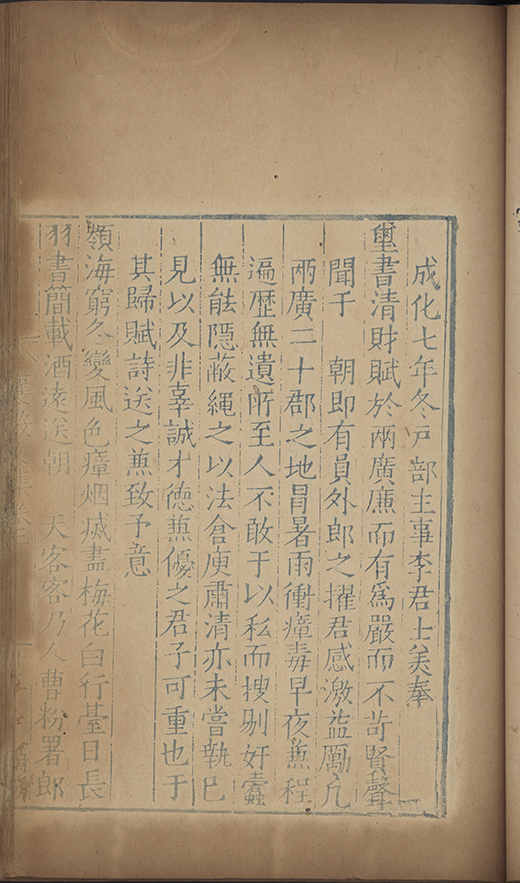 成化七年冬戸部主事李君士美奉
璽書清財賦於兩廣廉而有爲嚴而不苛賢聲
聞于　朝即有員外郎之擢君感激益勵凡
兩廣二十郡之地冐暑雨衝瘴毒早夜兼程
遍歷無遺所至人不敢干以私而搜剔奸蠹
無能隱蔽繩之以法倉庾肅清亦未嘗執己
見以及非辜誠才德兼優之君子可重也于
其歸賦詩送之兼致予意
嶺海窮冬變風色瘴烟烕盡梅花白行臺日長
羽書簡載酒遠送朝　天客客乃人曹粉署郎